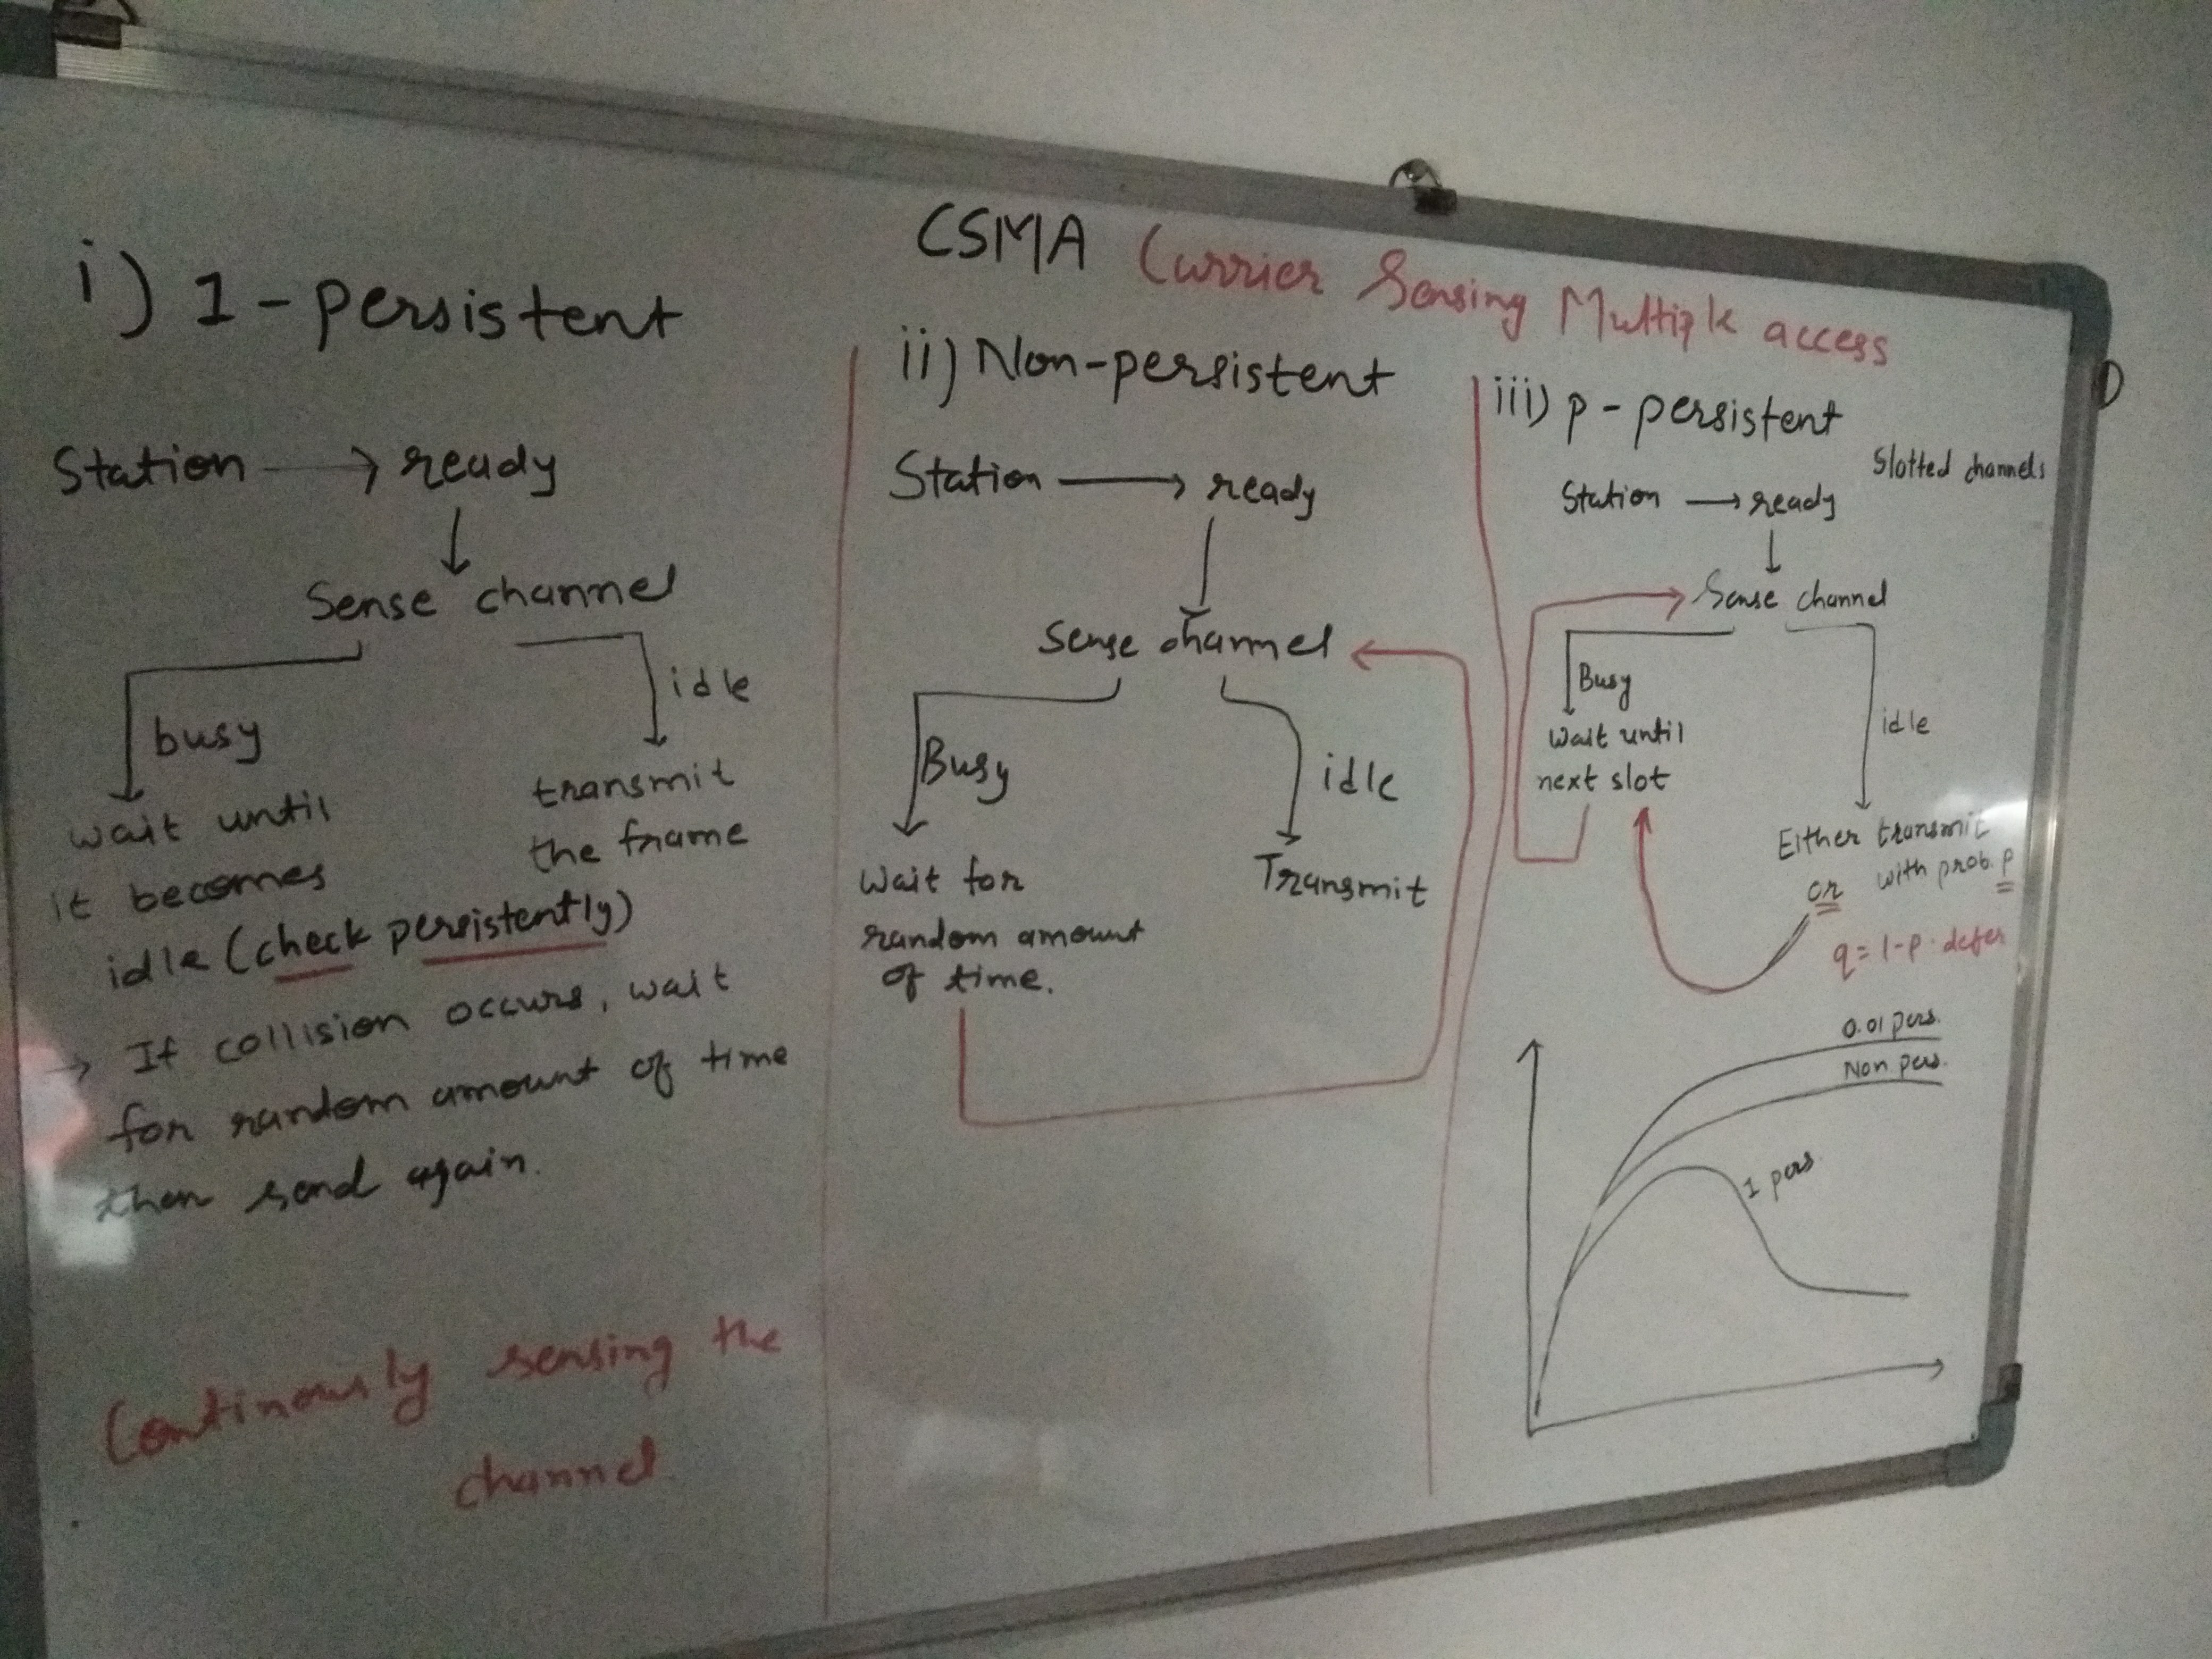 CSMA Carrier Sensing Multiple access
i) 1-persistent
Station → ready
Sense channel
busy
idle
wait until
it becomes
idle (check persistently)
transmit
the frame
→ If collision occurs, wait
for random amount of time
then send again.
Continously sensing the
channel
ii) Non-persistent
Station → ready
Sense channel
Busy
idle
Wait for
random amount
of time.
Transmit
iii) p-persistent
Slotted channels
Station → ready
Sense channel
Busy
idle
Wait until
next slot
Either transmit
with prob. p
or
q = 1-p. defer
0.01 pers.
Non pers.
1 pers.